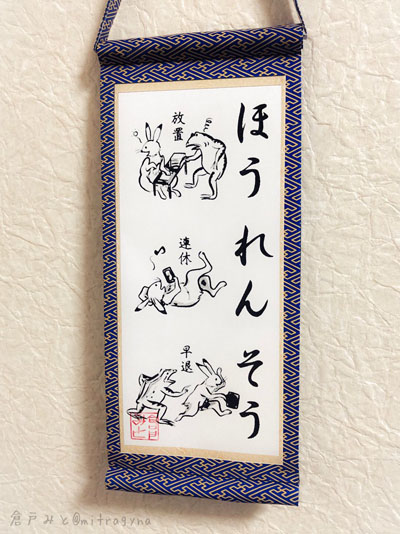 ほうれんそう
放置
連休
早退
倉戸みと@mitragyna